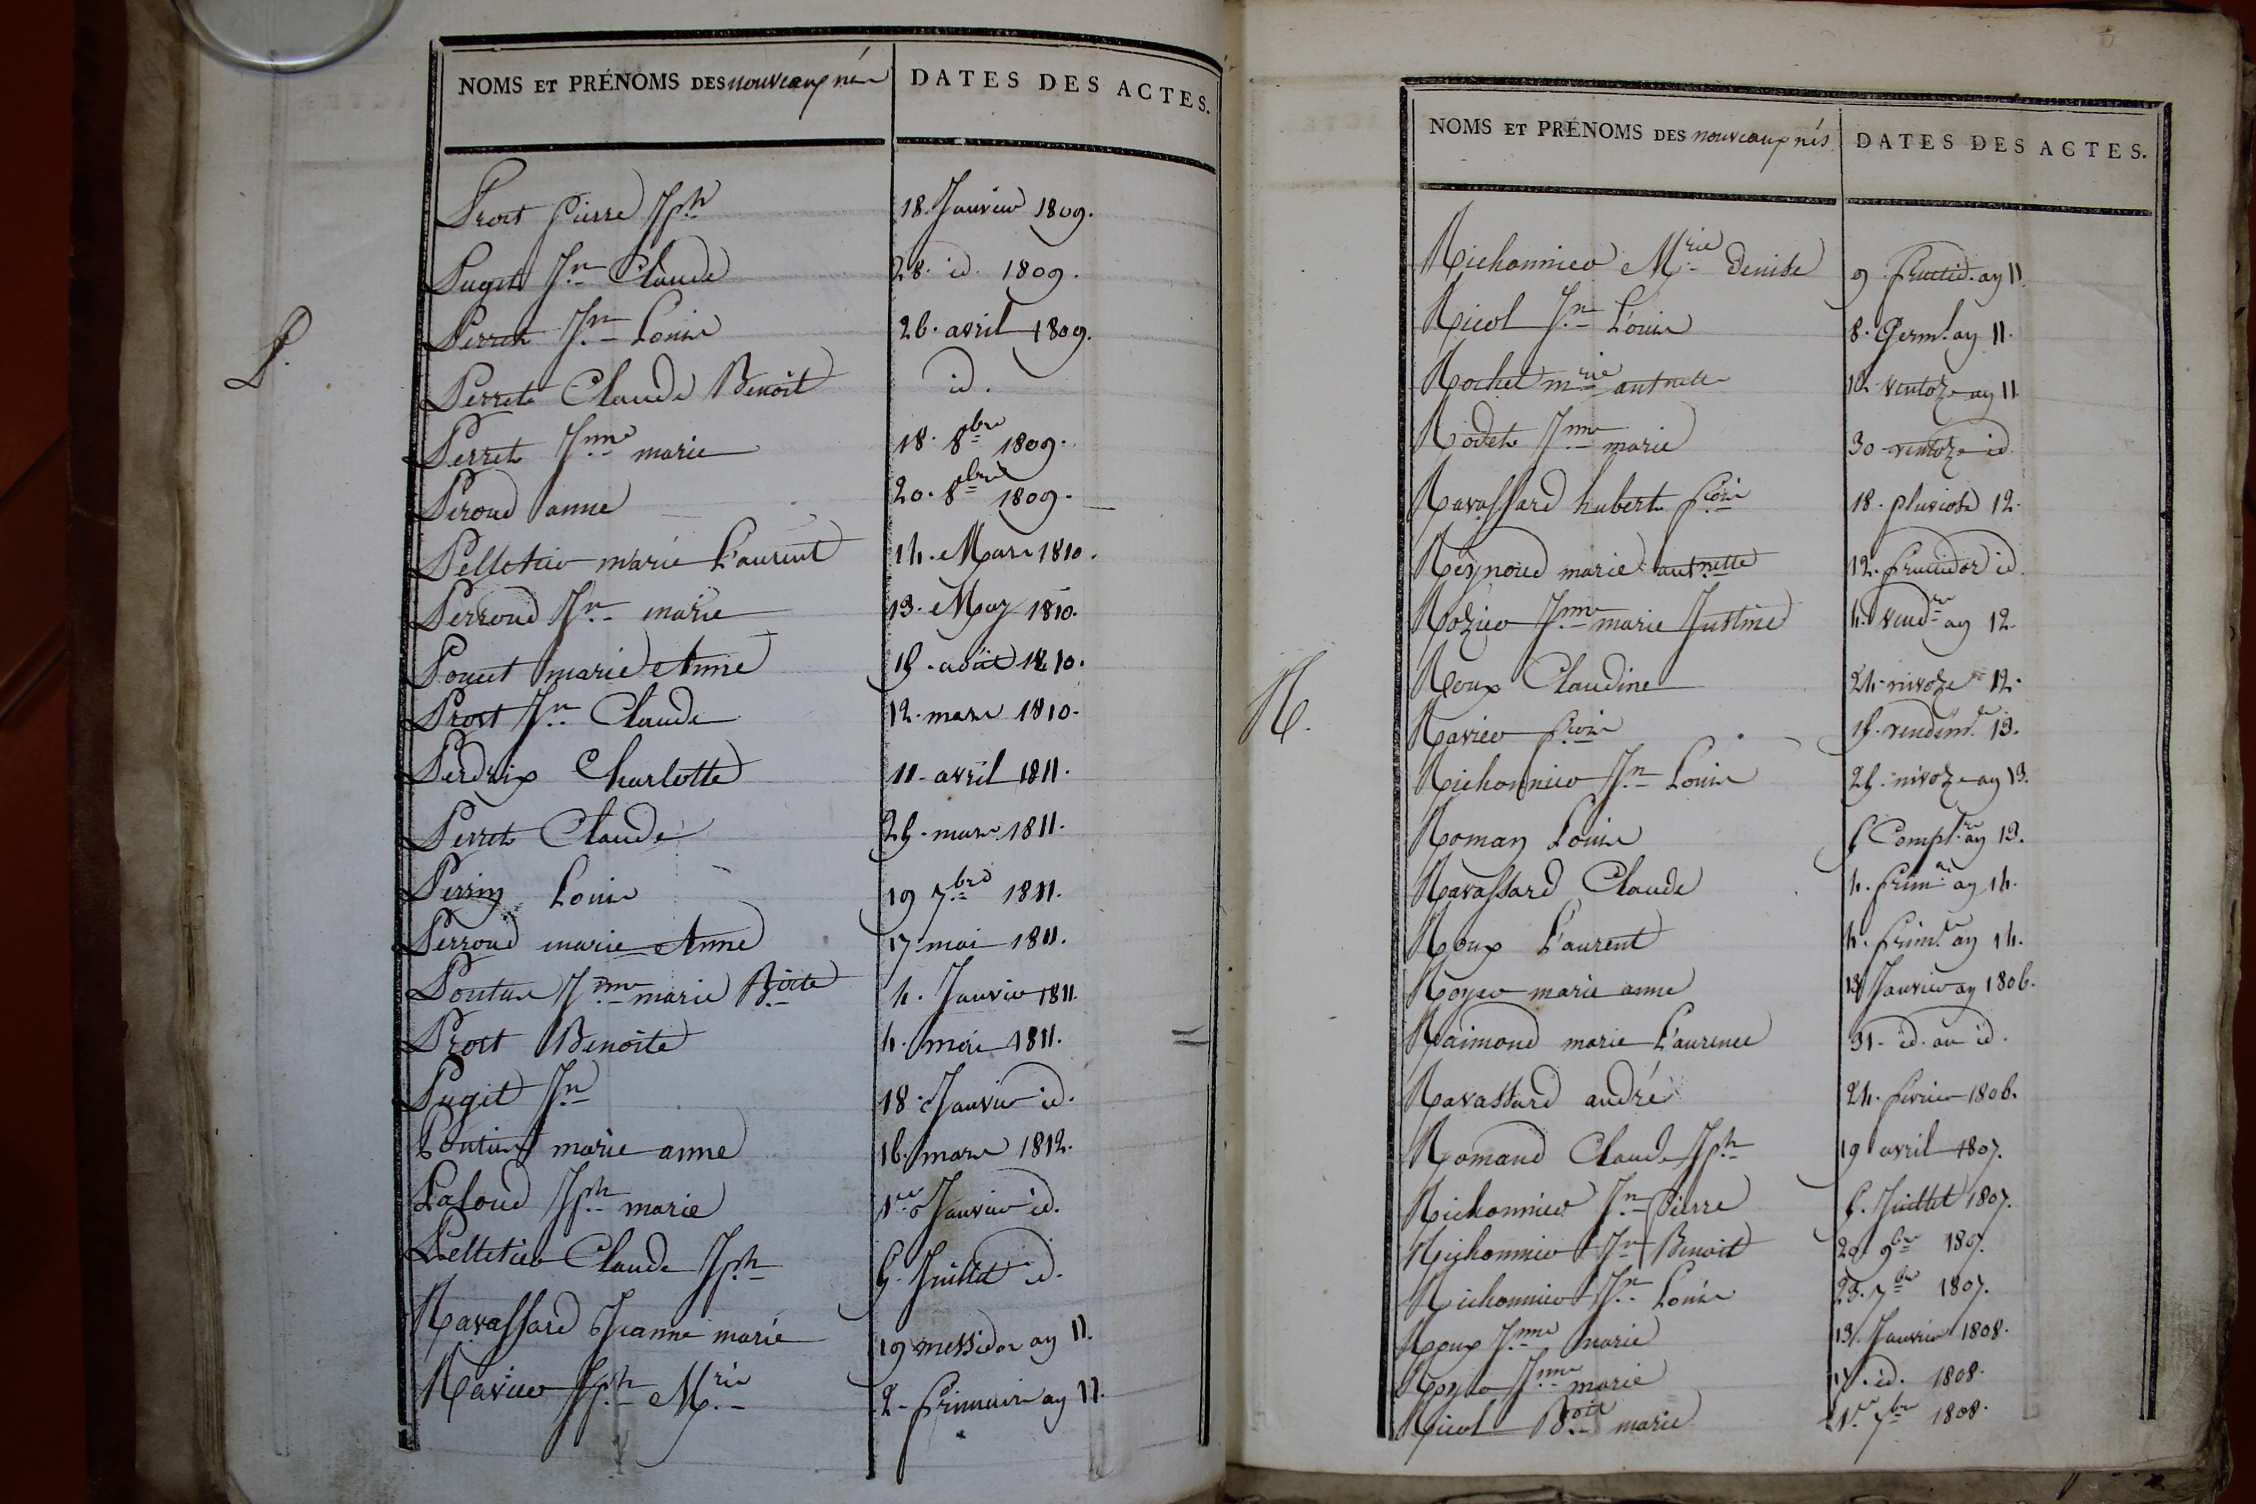 NOMS ET PRÉNOMS DES nouveaux nés
DATES DES ACTES.
P.
Prost Pierre Jph 18. Janvier 1809.
Puget Jn Claude 28. id. 1809.
Perret Jn Louis 26. avril 1809.
Perret Claude Benoit id.
Perret Jnne marie 18. 8bre 1809.
Peroud anne 20. 8bre 1809.
Pelletier marie Laurent 14. Mars 1810.
Perroud Jn marie 13. May 1810.
Poncet marie Anne 15. août 1810.
Prost Jn Claude 12. mars 1810.
Perdrix Charlotte 11. avril 1811.
Perret Claude 25. mars 1811.
Perrin Louis 19 7bre 1811.
Perroud marie Anne 17 mai 1811.
Pontus Jnne marie Boite 4. Janvier 1811.
Prost Benoite 4. mai 1811.
Puget Jn 18. Janvier id.
marie anne 16. mars 1812.
Paloud Jph marie 1er Janvier id.
Pelletier Claude Jph 5. Juillet id.
Ravassard Jeanne marie 19 messidor an 11.
Ravier Jph Mrie 2. frimaire an 11.
NOMS ET PRÉNOMS DES nouveaux nés
DATES DES ACTES.
R.
Richonnier Mrie Denise 9. fructid. an 11.
Ricol Jn Louis 8. Germl. an 11.
Rochet mrie antnette 12. ventoze an 11
Rodet Jnne marie 30 ventoze id
Ravassard hubert fcois 18. pluviose 12.
Reynoud marie antnette 12. fructidor id.
Rozier Jnne marie Justine 4. vendre an 12.
Roux Claudine 24. nivoze 12.
Ravier fcois 15. vendemre 13.
Richonnier Jn Louis 25. nivoze an 13.
Roman Louis 5 Complre an 13.
Ravassard Claude 4. frimre an 14.
Roux Laurent 4. frimre an 14.
Royer marie anne 13 Janvier an 1806.
Raimond marie Laurence 31. id. an id.
Ravassard andré 24. fevrier 1806.
Romand Claude Jph 19 avril 1807.
Richonnier Jn Pierre 5. Juillet 1807.
Richonnier Jn Benoit 20. 9bre 1807.
Richonnier Jn Louis 23. 7bre 1807.
Roux Jnne marie 13. Janvier 1808.
Royer Jnne marie id. 1808.
Ricol Boite marie 1er 7bre 1808.